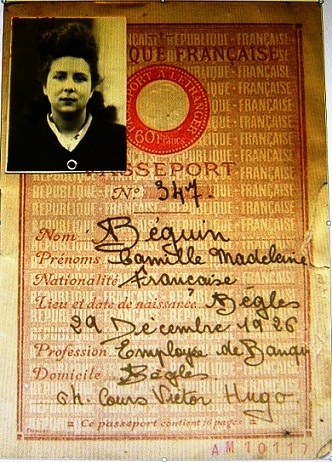 RÉPUBLIQUE FRANÇAISE
PASSEPORT À L'ÉTRANGER
60 Francs
PASSEPORT
N° 347.
Nom Béguin
Prénoms Camille Madeleine
Nationalité Française
Lieu et date de naissance Bègles
29 Décembre 1926
Profession Employée de Banque
Domicile Bègles.
64. Cours Victor Hugo
Ce passeport contient pages
AM 10117